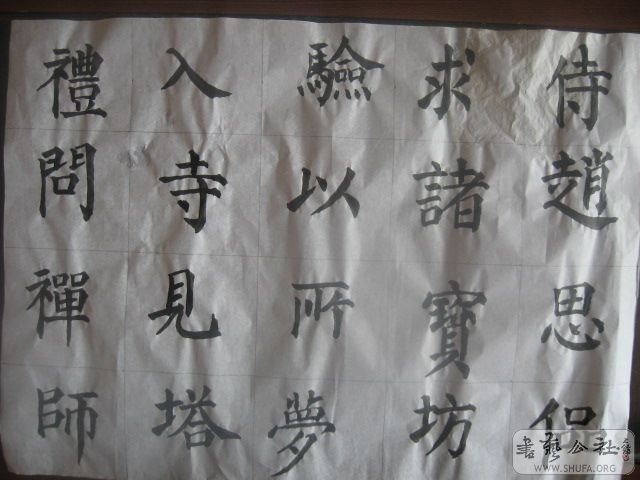 侍趙思侶
求諸寶坊
驗以所夢
入寺見塔
禮問禪師
書藝公社
WWW.SHUFA.ORG